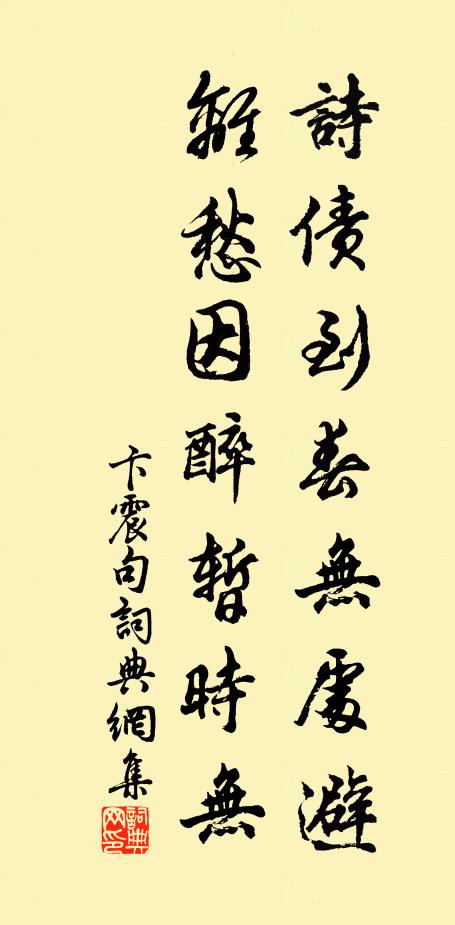 詩債到春無處避
離愁因醉暫時無
卞震句詞典網集
詞典
网印